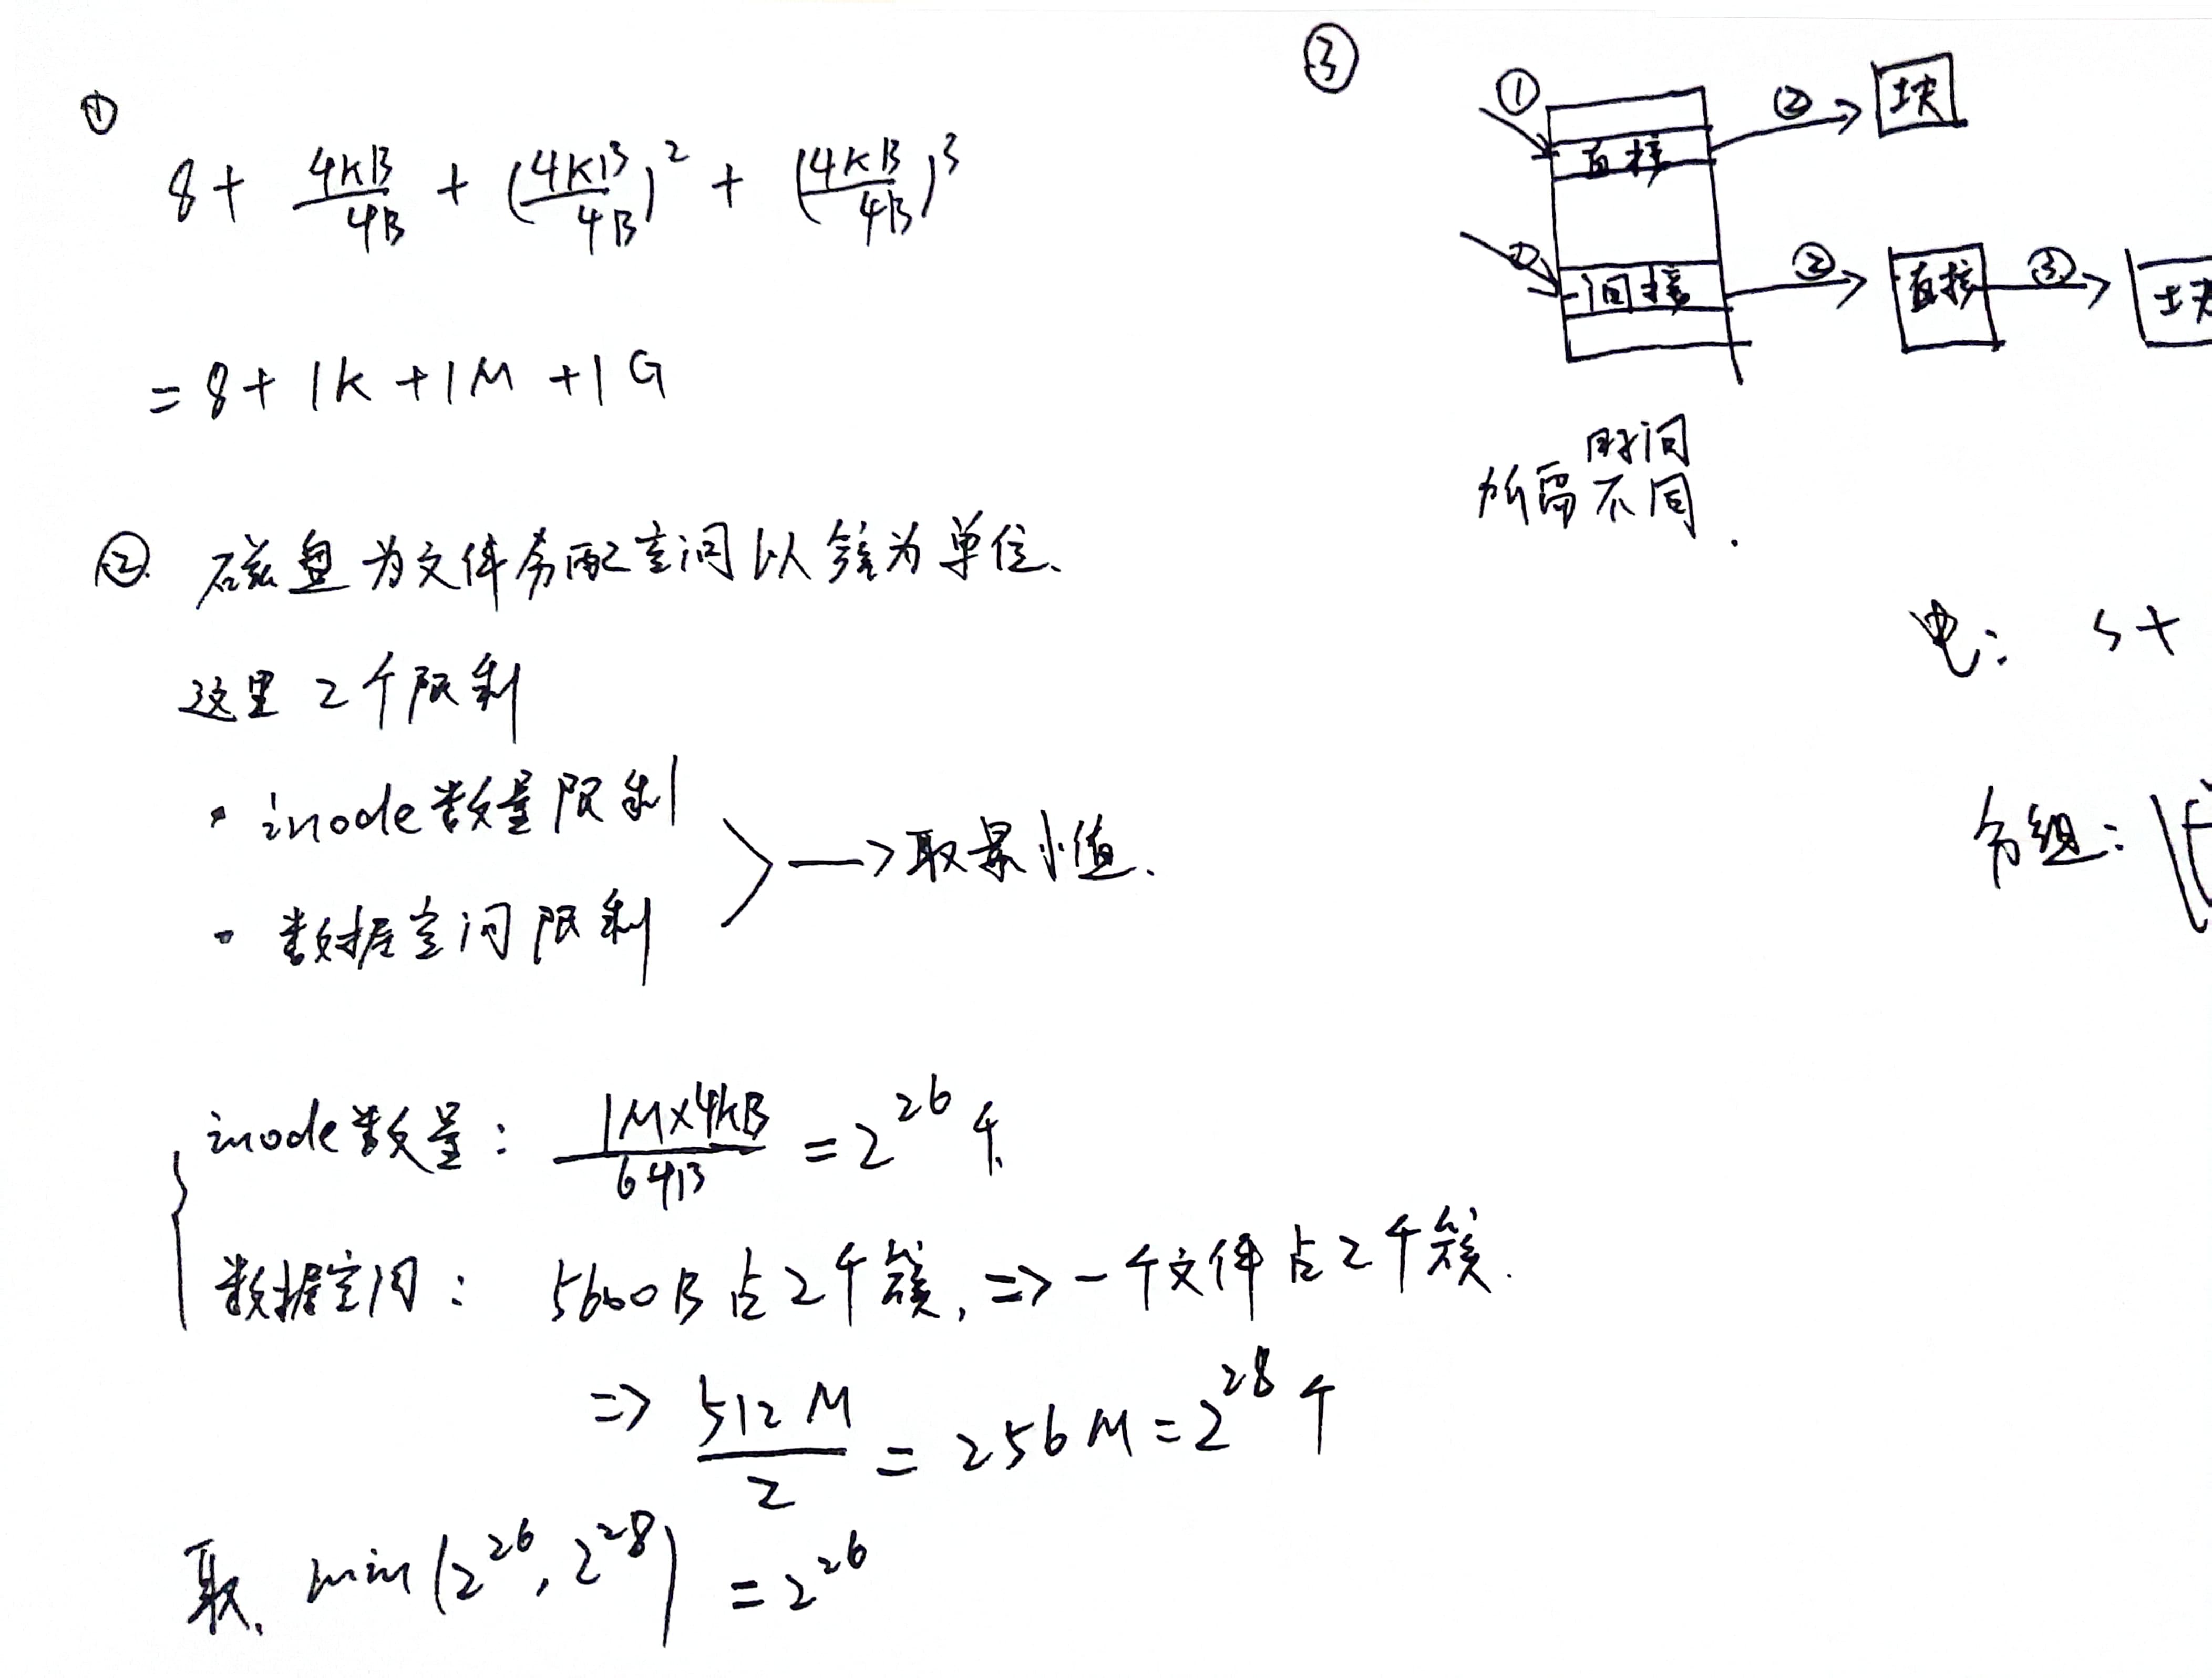 ①
8 + 4KB/4B + (4KB/4B)² + (4KB/4B)³
= 8 + 1K + 1M + 1G
② 磁盘为文件分配空间以簇为单位.
这里 2个限制
· inode数量限制
· 数据空间限制
→取最小值.
inode数量: 1M×4KB/64B = 2²⁶个.
数据空间: 5600B占2个簇, => 一个文件占2个簇.
=> 512M/2 = 256M = 2²⁸个
取. min(2²⁶, 2²⁸) = 2²⁶
③
① 直接 ② 块
① 一间接 ② 直接 ③ 块
所需时间
不同.
电: S+
分组: